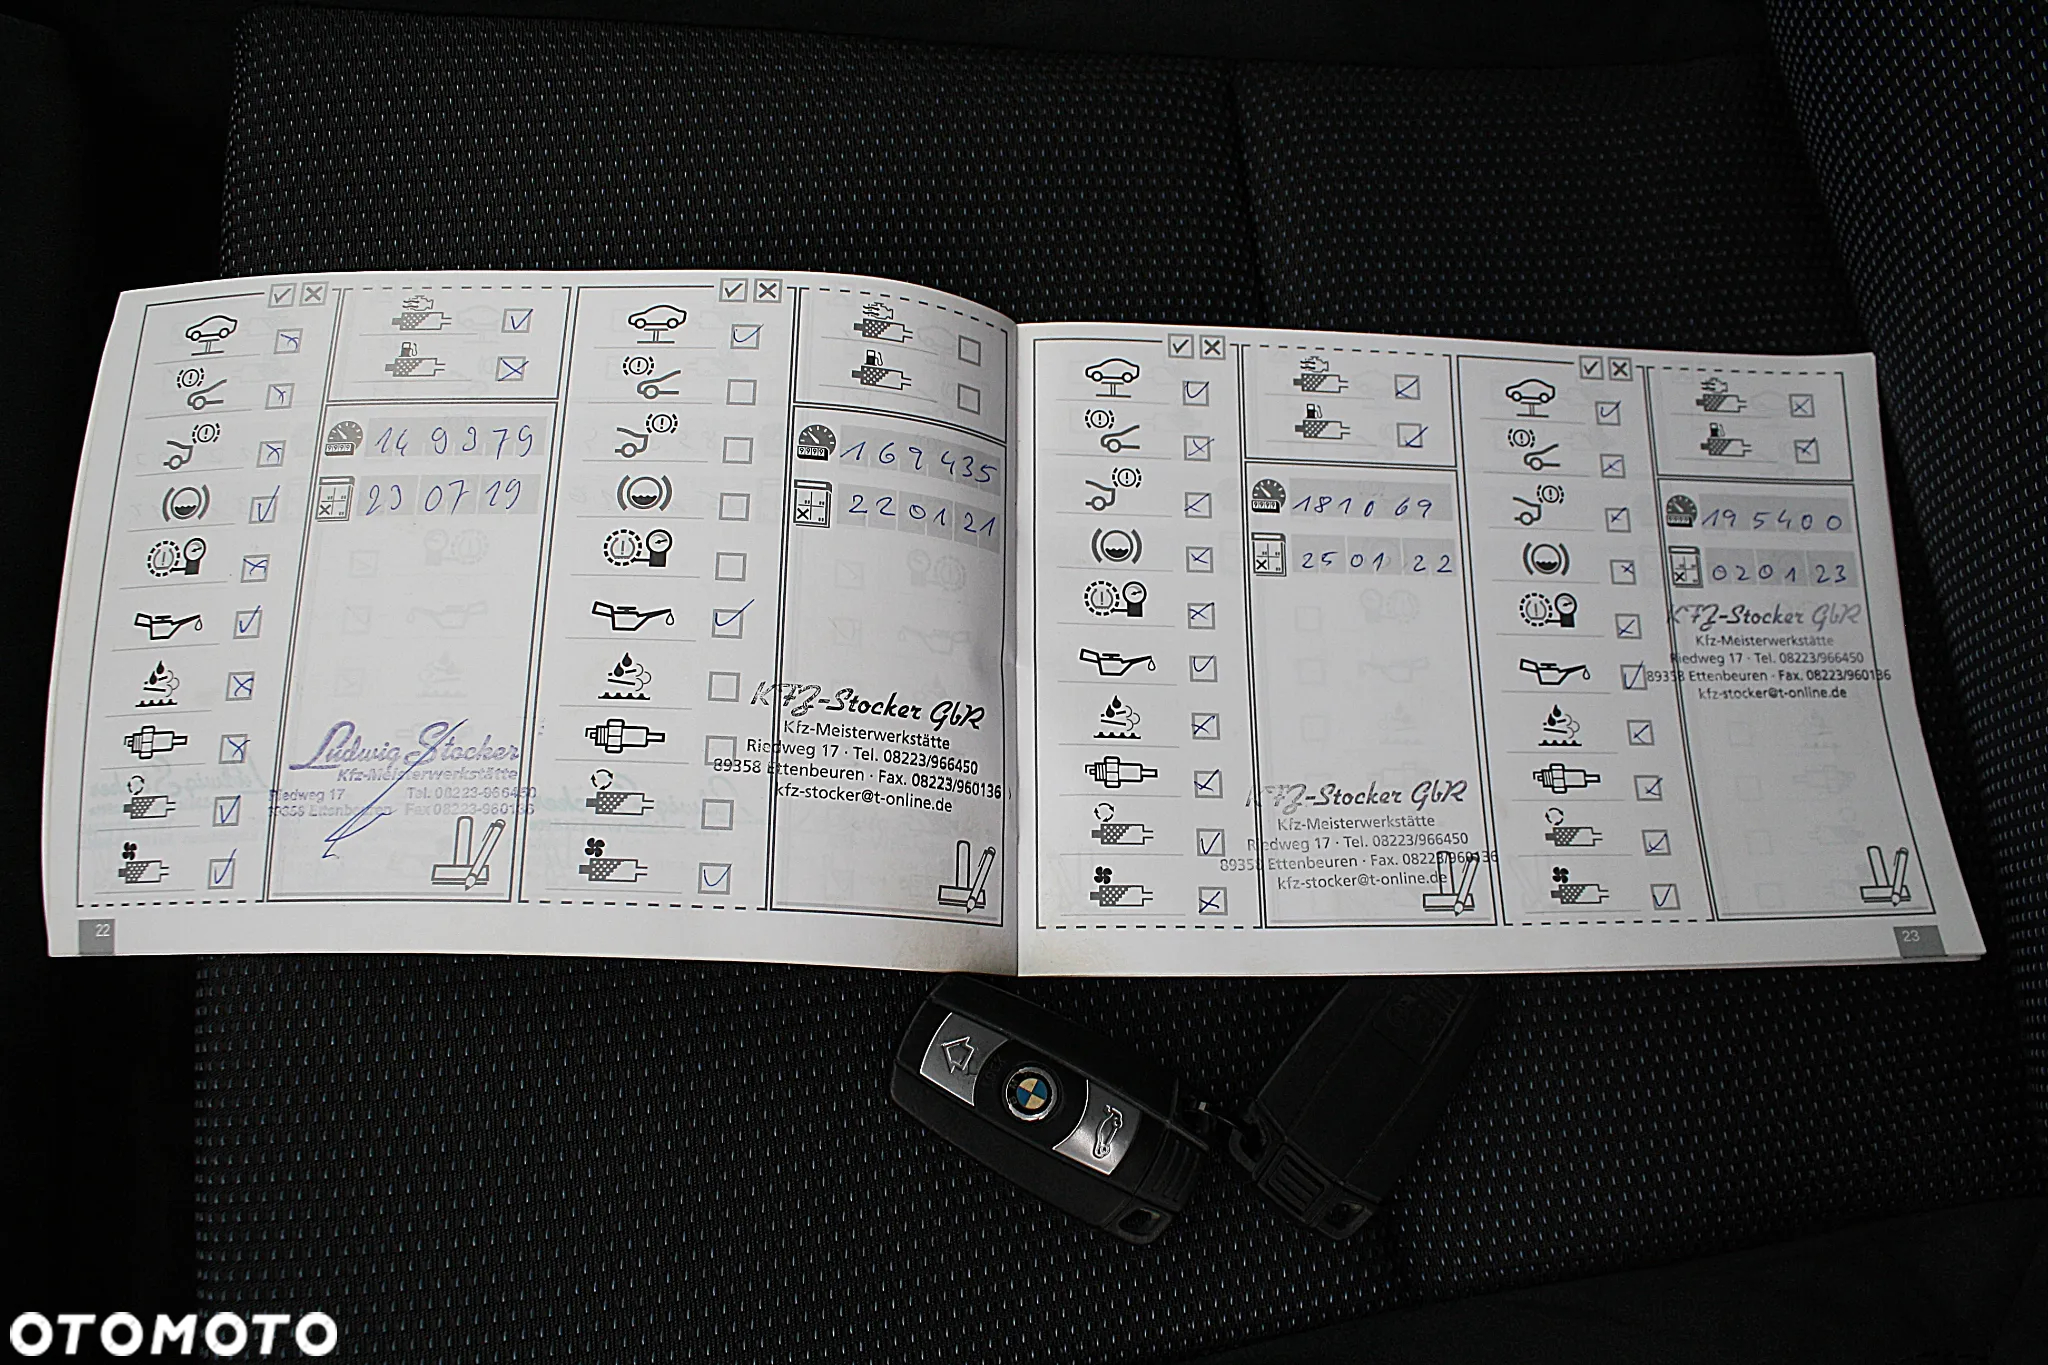 149379
23 07 19
Ludwig Stocker
Kfz-Meisterwerkstätte
Riedweg 17 Tel. 08223-966450
89358 Ettenbeuren Fax 08223-960136
22
169435
22 01 21
KFZ-Stocker GbR
Kfz-Meisterwerkstätte
Riedweg 17 · Tel. 08223/966450
89358 Ettenbeuren · Fax. 08223/960136
kfz-stocker@t-online.de
181069
25 01 22
KFZ-Stocker GbR
Kfz-Meisterwerkstätte
Riedweg 17 · Tel. 08223/966450
89358 Ettenbeuren · Fax. 08223/960136
kfz-stocker@t-online.de
195400
02 01 23
KFZ-Stocker GbR
Kfz-Meisterwerkstätte
Riedweg 17 · Tel. 08223/966450
89358 Ettenbeuren · Fax. 08223/960136
kfz-stocker@t-online.de
23
OTOMOTO